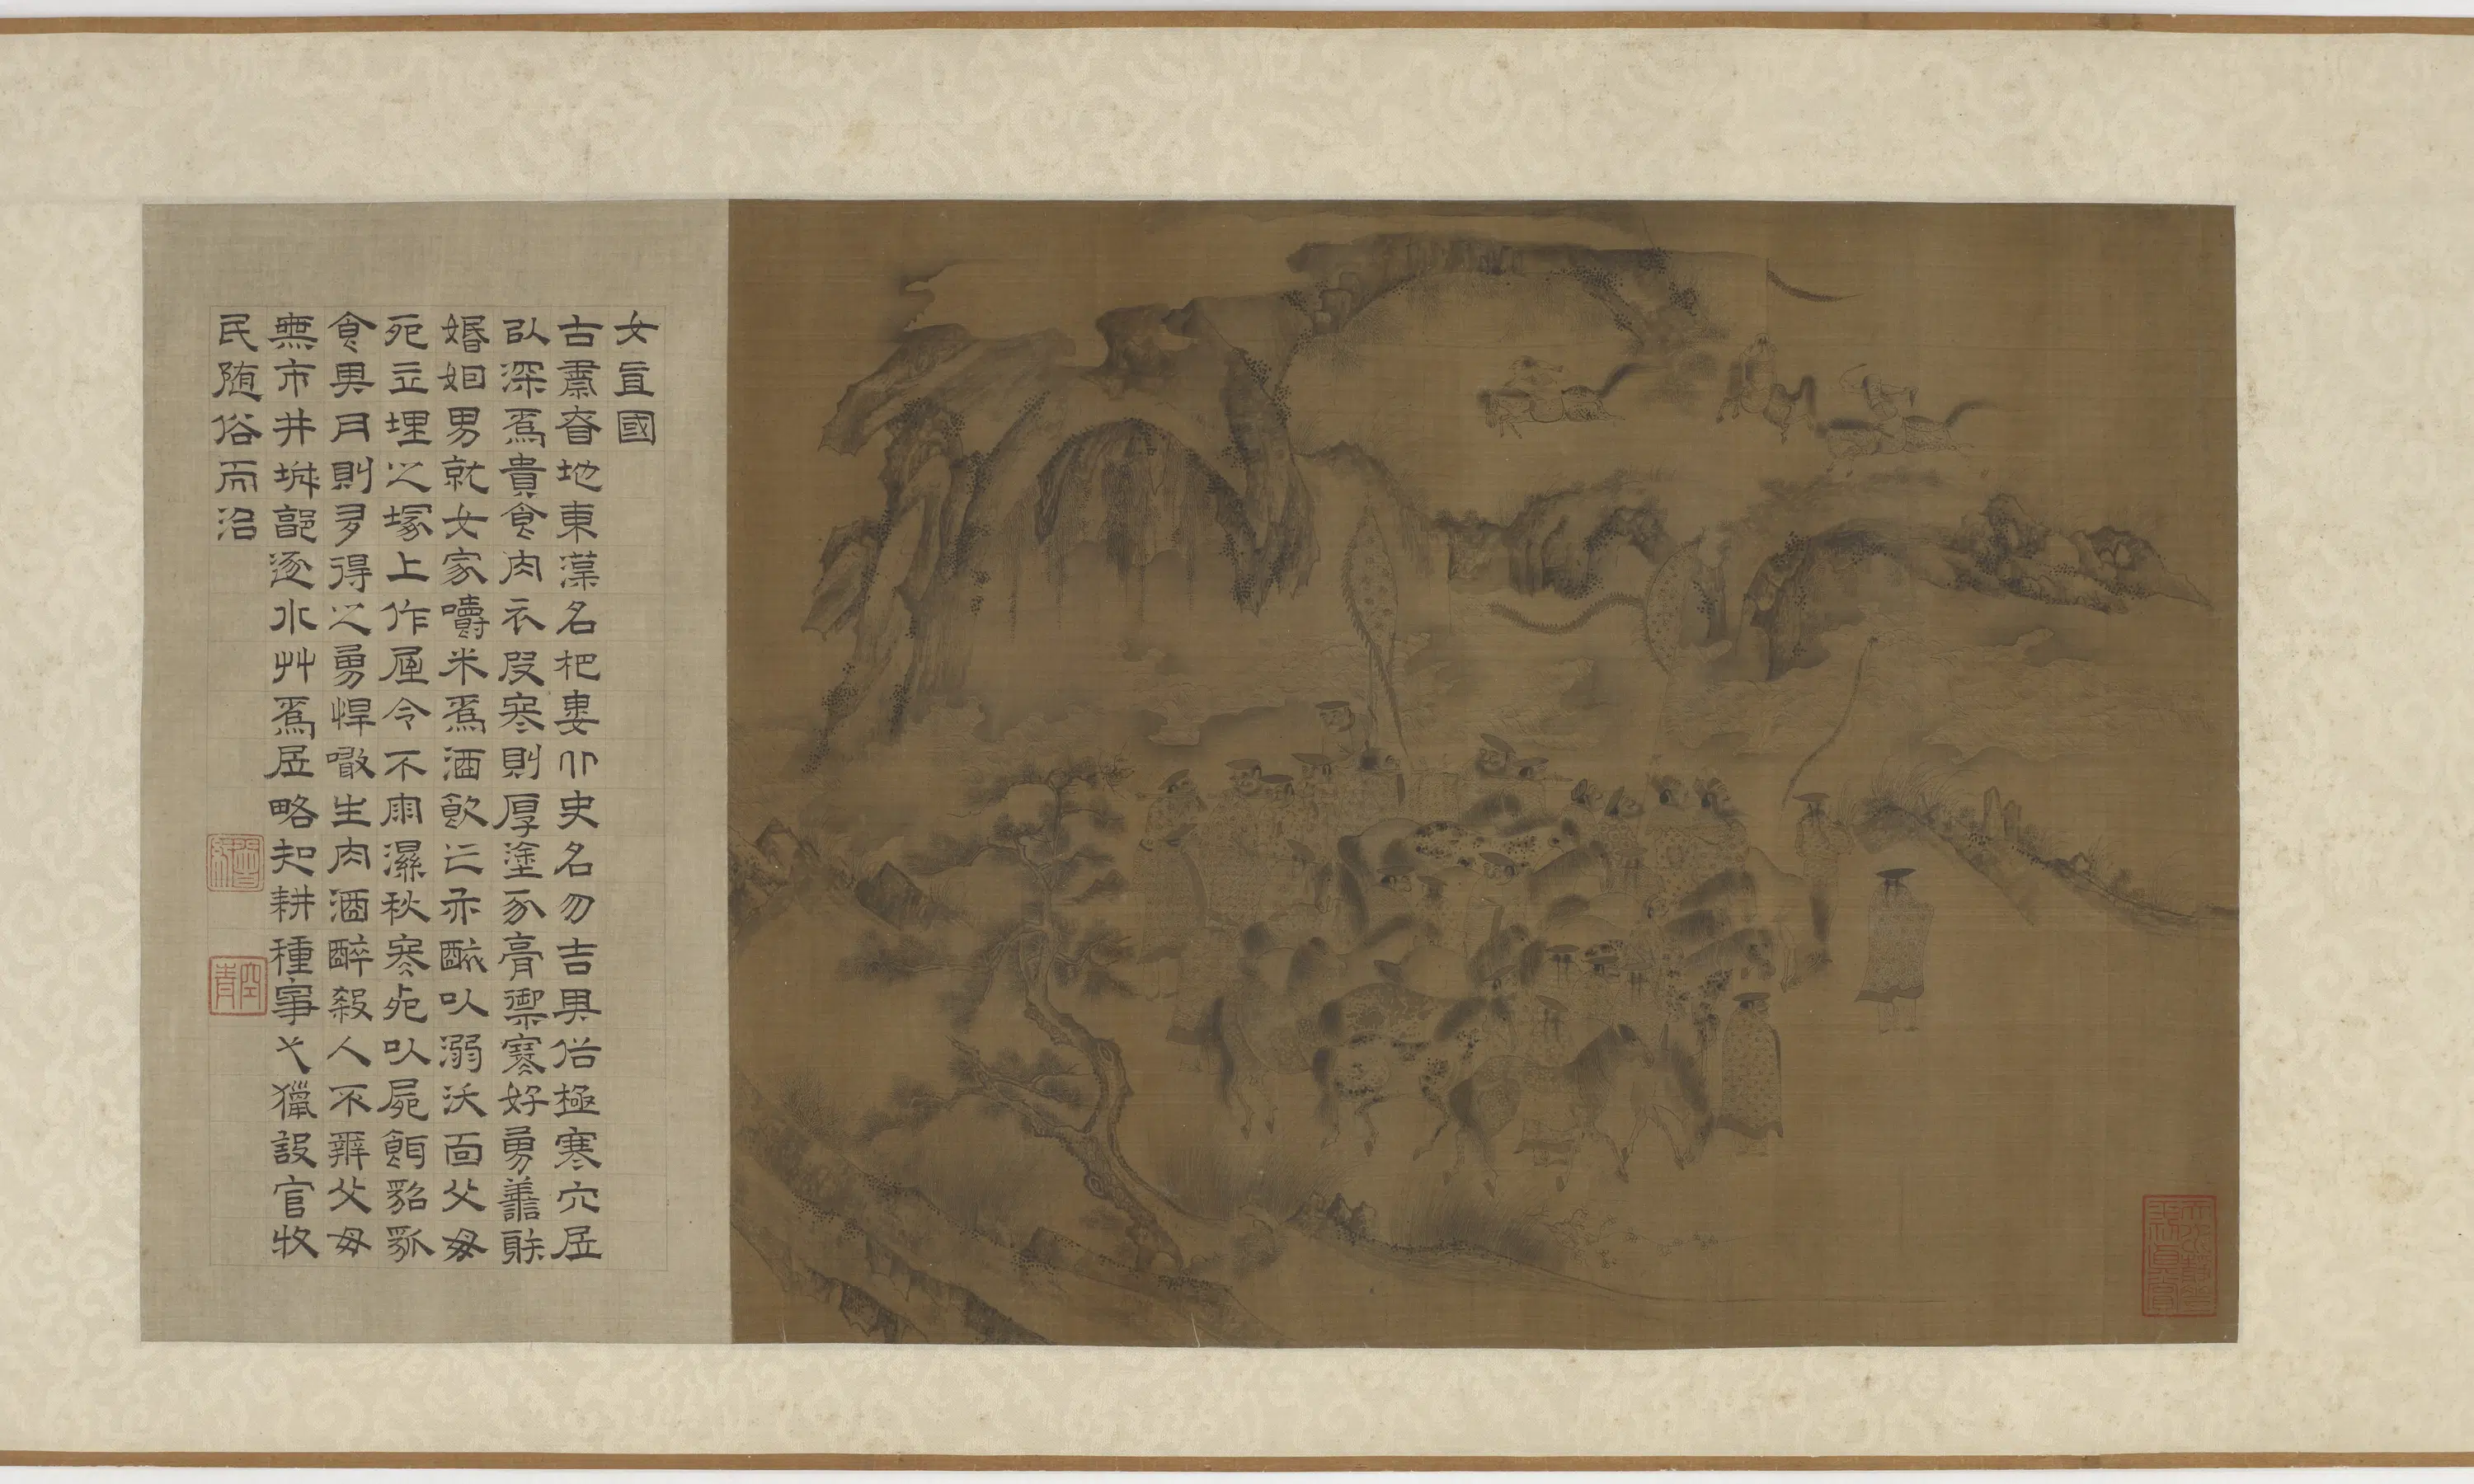 女直國
古肅眘地東漢名杷婁北史名勿吉異俗極寒穴居
以深爲貴食肉衣皮寒則厚塗豕膏禦寒好勇善騎
婚姻男就女家嚼米爲酒飲之亦醎以溺沃面父母
死立埋之塚上作屋令不雨濕秋冬死以屍餌貂
食異月則多得之勇悍噉生肉酒醉殺人不辨父母
無市井城郭逐水艸爲居略知耕種事弋獵設官牧
民随俗而治